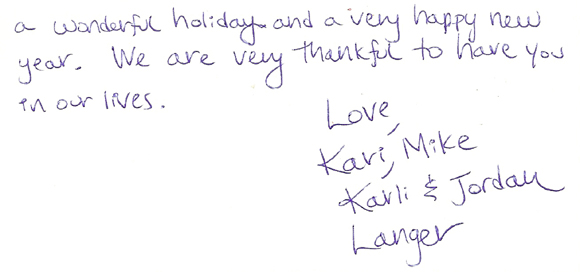 a wonderful holiday and a very happy new
year. We are very thankful to have you
in our lives.
Love,
Kari, Mike
Karli & Jordan
Langer